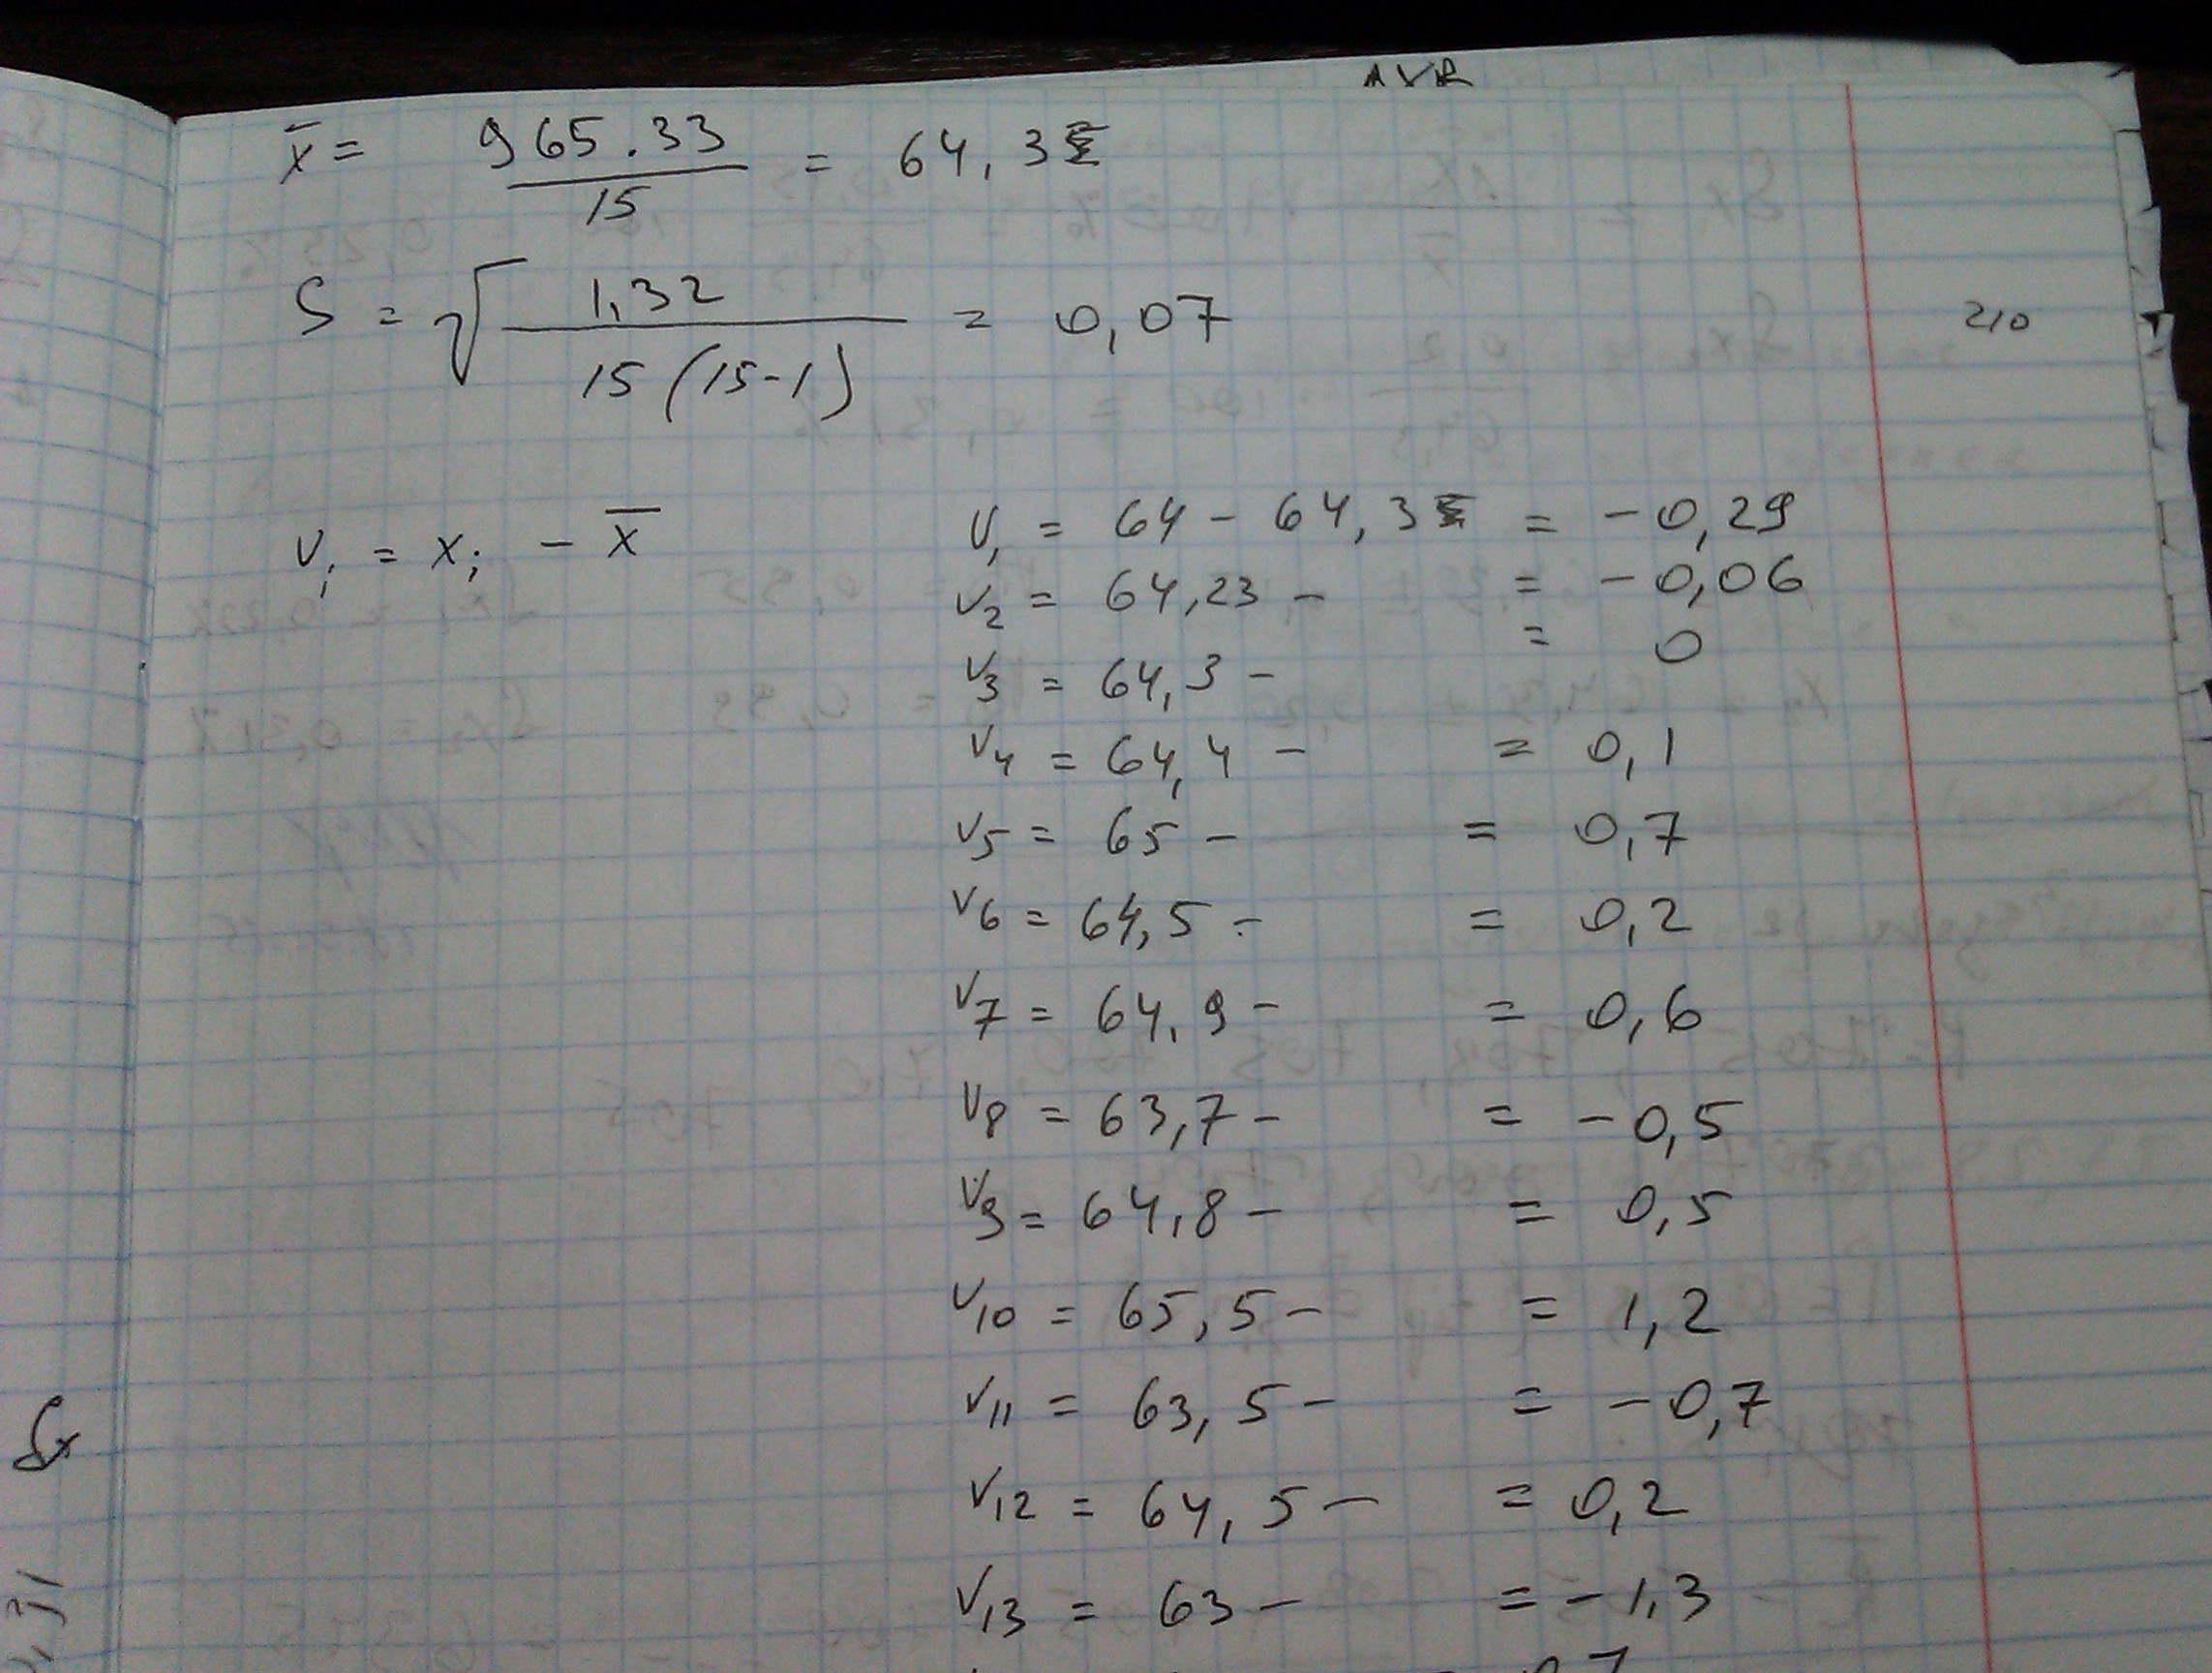 AVR
x̄ = 965.33 / 15 = 64,3
S = √(1,32 / 15(15-1)) = 0,07
210
Vᵢ = xᵢ - x̄
V₁ = 64 - 64,3 = -0,29
V₂ = 64,23 - = -0,06
V₃ = 64,3 - = 0
V₄ = 64,4 - = 0,1
V₅ = 65 - = 0,7
V₆ = 64,5 - = 0,2
V₇ = 64,9 - = 0,6
V₈ = 63,7 - = -0,5
V₉ = 64,8 - = 0,5
V₁₀ = 65,5 - = 1,2
V₁₁ = 63,5 - = -0,7
V₁₂ = 64,5 - = 0,2
V₁₃ = 63 - = -1,3